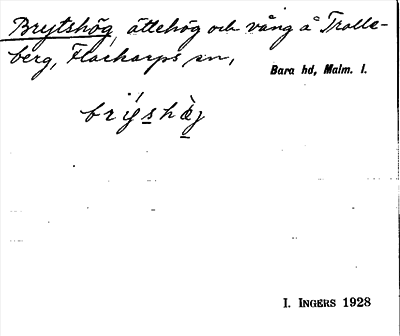 Brytshög, ättehög och vång å Trolle-
berg, Flackarps sn,
Bara hd, Malm. l.
brýshὰj
I. INGERS 1928